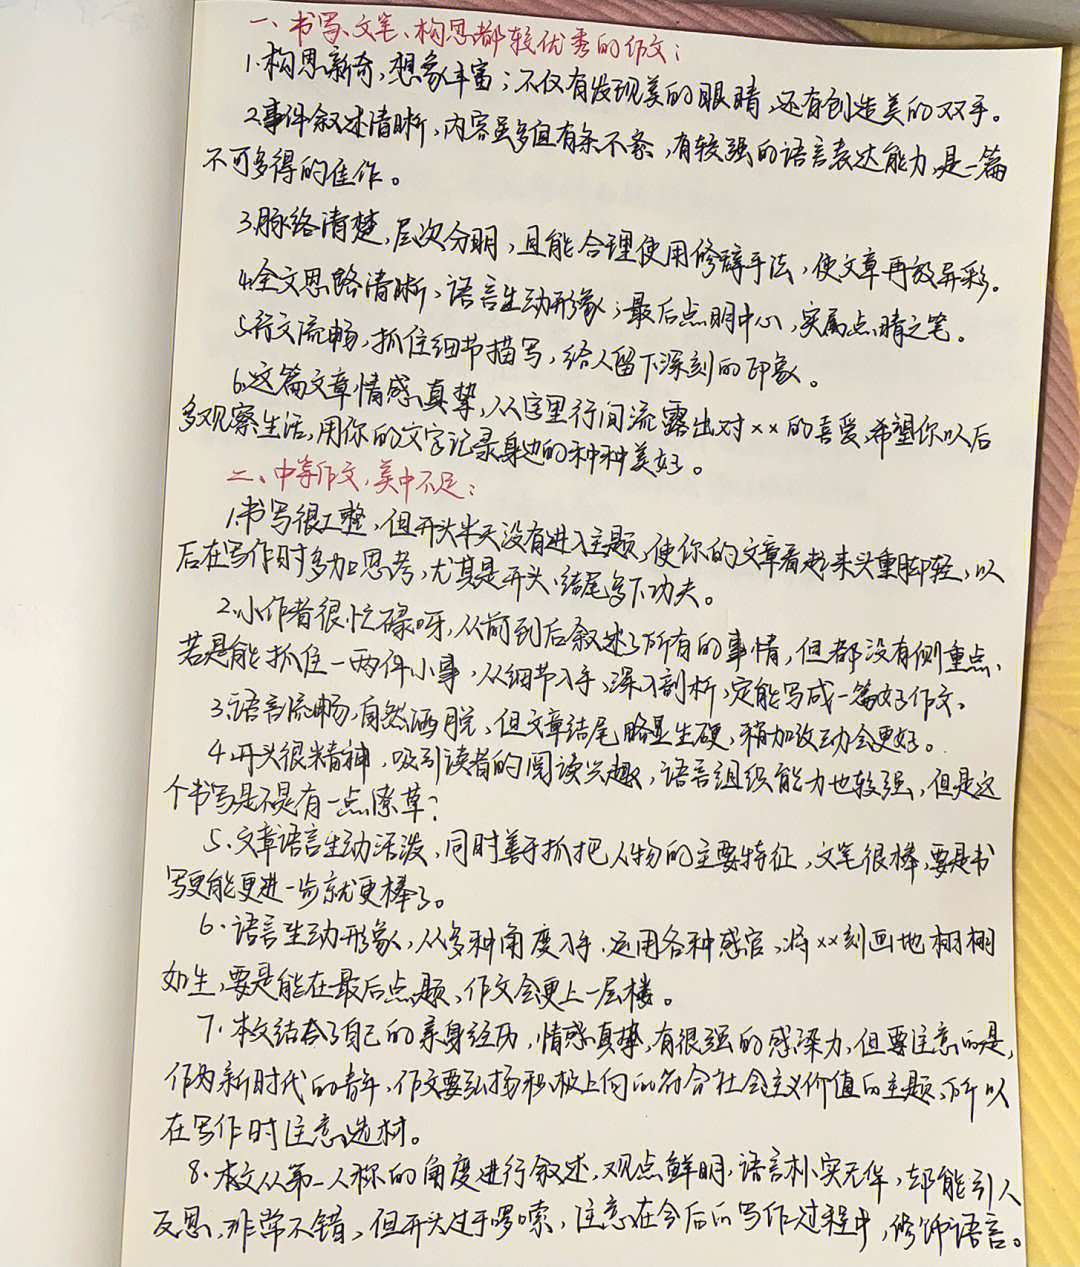 一、书写、文笔、构思都较优秀的作文：
1.构思新奇，想象丰富；不仅有发现美的眼睛，还有创造美的双手。
2.事件叙述清晰，内容虽多但有条不紊，有较强的语言表达能力，是一篇
不可多得的佳作。
3.脉络清楚，层次分明，且能合理使用修辞手法，使文章再放异彩。
4.全文思路清晰，语言生动形象；最后点明中心，实属点睛之笔。
5.行文流畅，抓住细节描写，给人留下深刻的印象。
6.这篇文章情感真挚，从字里行间流露出对××的喜爱，希望你以后
多观察生活，用你的文字记录身边的种种美好。
二、中等作文，美中不足：
1.书写很工整，但开头半天没有进入主题，使你的文章看起来头重脚轻，以
后在写作时多加思考，尤其是开头、结尾多下功夫。
2.小作者很忙碌呀，从前到后叙述了所有的事情，但都没有侧重点，
若是能抓住一两件小事，从细节入手，深入剖析，定能写成一篇好作文。
3.语言流畅，自然洒脱，但文章结尾略显生硬，稍加改动会更好。
4.开头很精神，吸引读者的阅读兴趣，语言组织能力也较强，但是这
个书写是不是有一点潦草？
5.文章语言生动活泼，同时善于抓把人物的主要特征，文笔很棒，要是书
写更能更进一步就更棒了。
6.语言生动形象，从多种角度入手，运用各种感官，将××刻画地栩栩
如生，要是能在最后点题，作文会更上一层楼。
7.本文结合了自己的亲身经历，情感真挚，有很强的感染力，但要注意的是，
作为新时代的青年，作文要弘扬积极上向的符合社会主义价值的主题，所以
在写作时注意选材。
8.本文从第一人称的角度进行叙述，观点鲜明，语言朴实无华，却能引人
反思，非常不错，但开头过于啰嗦，注意在今后的写作过程中，修饰语言。